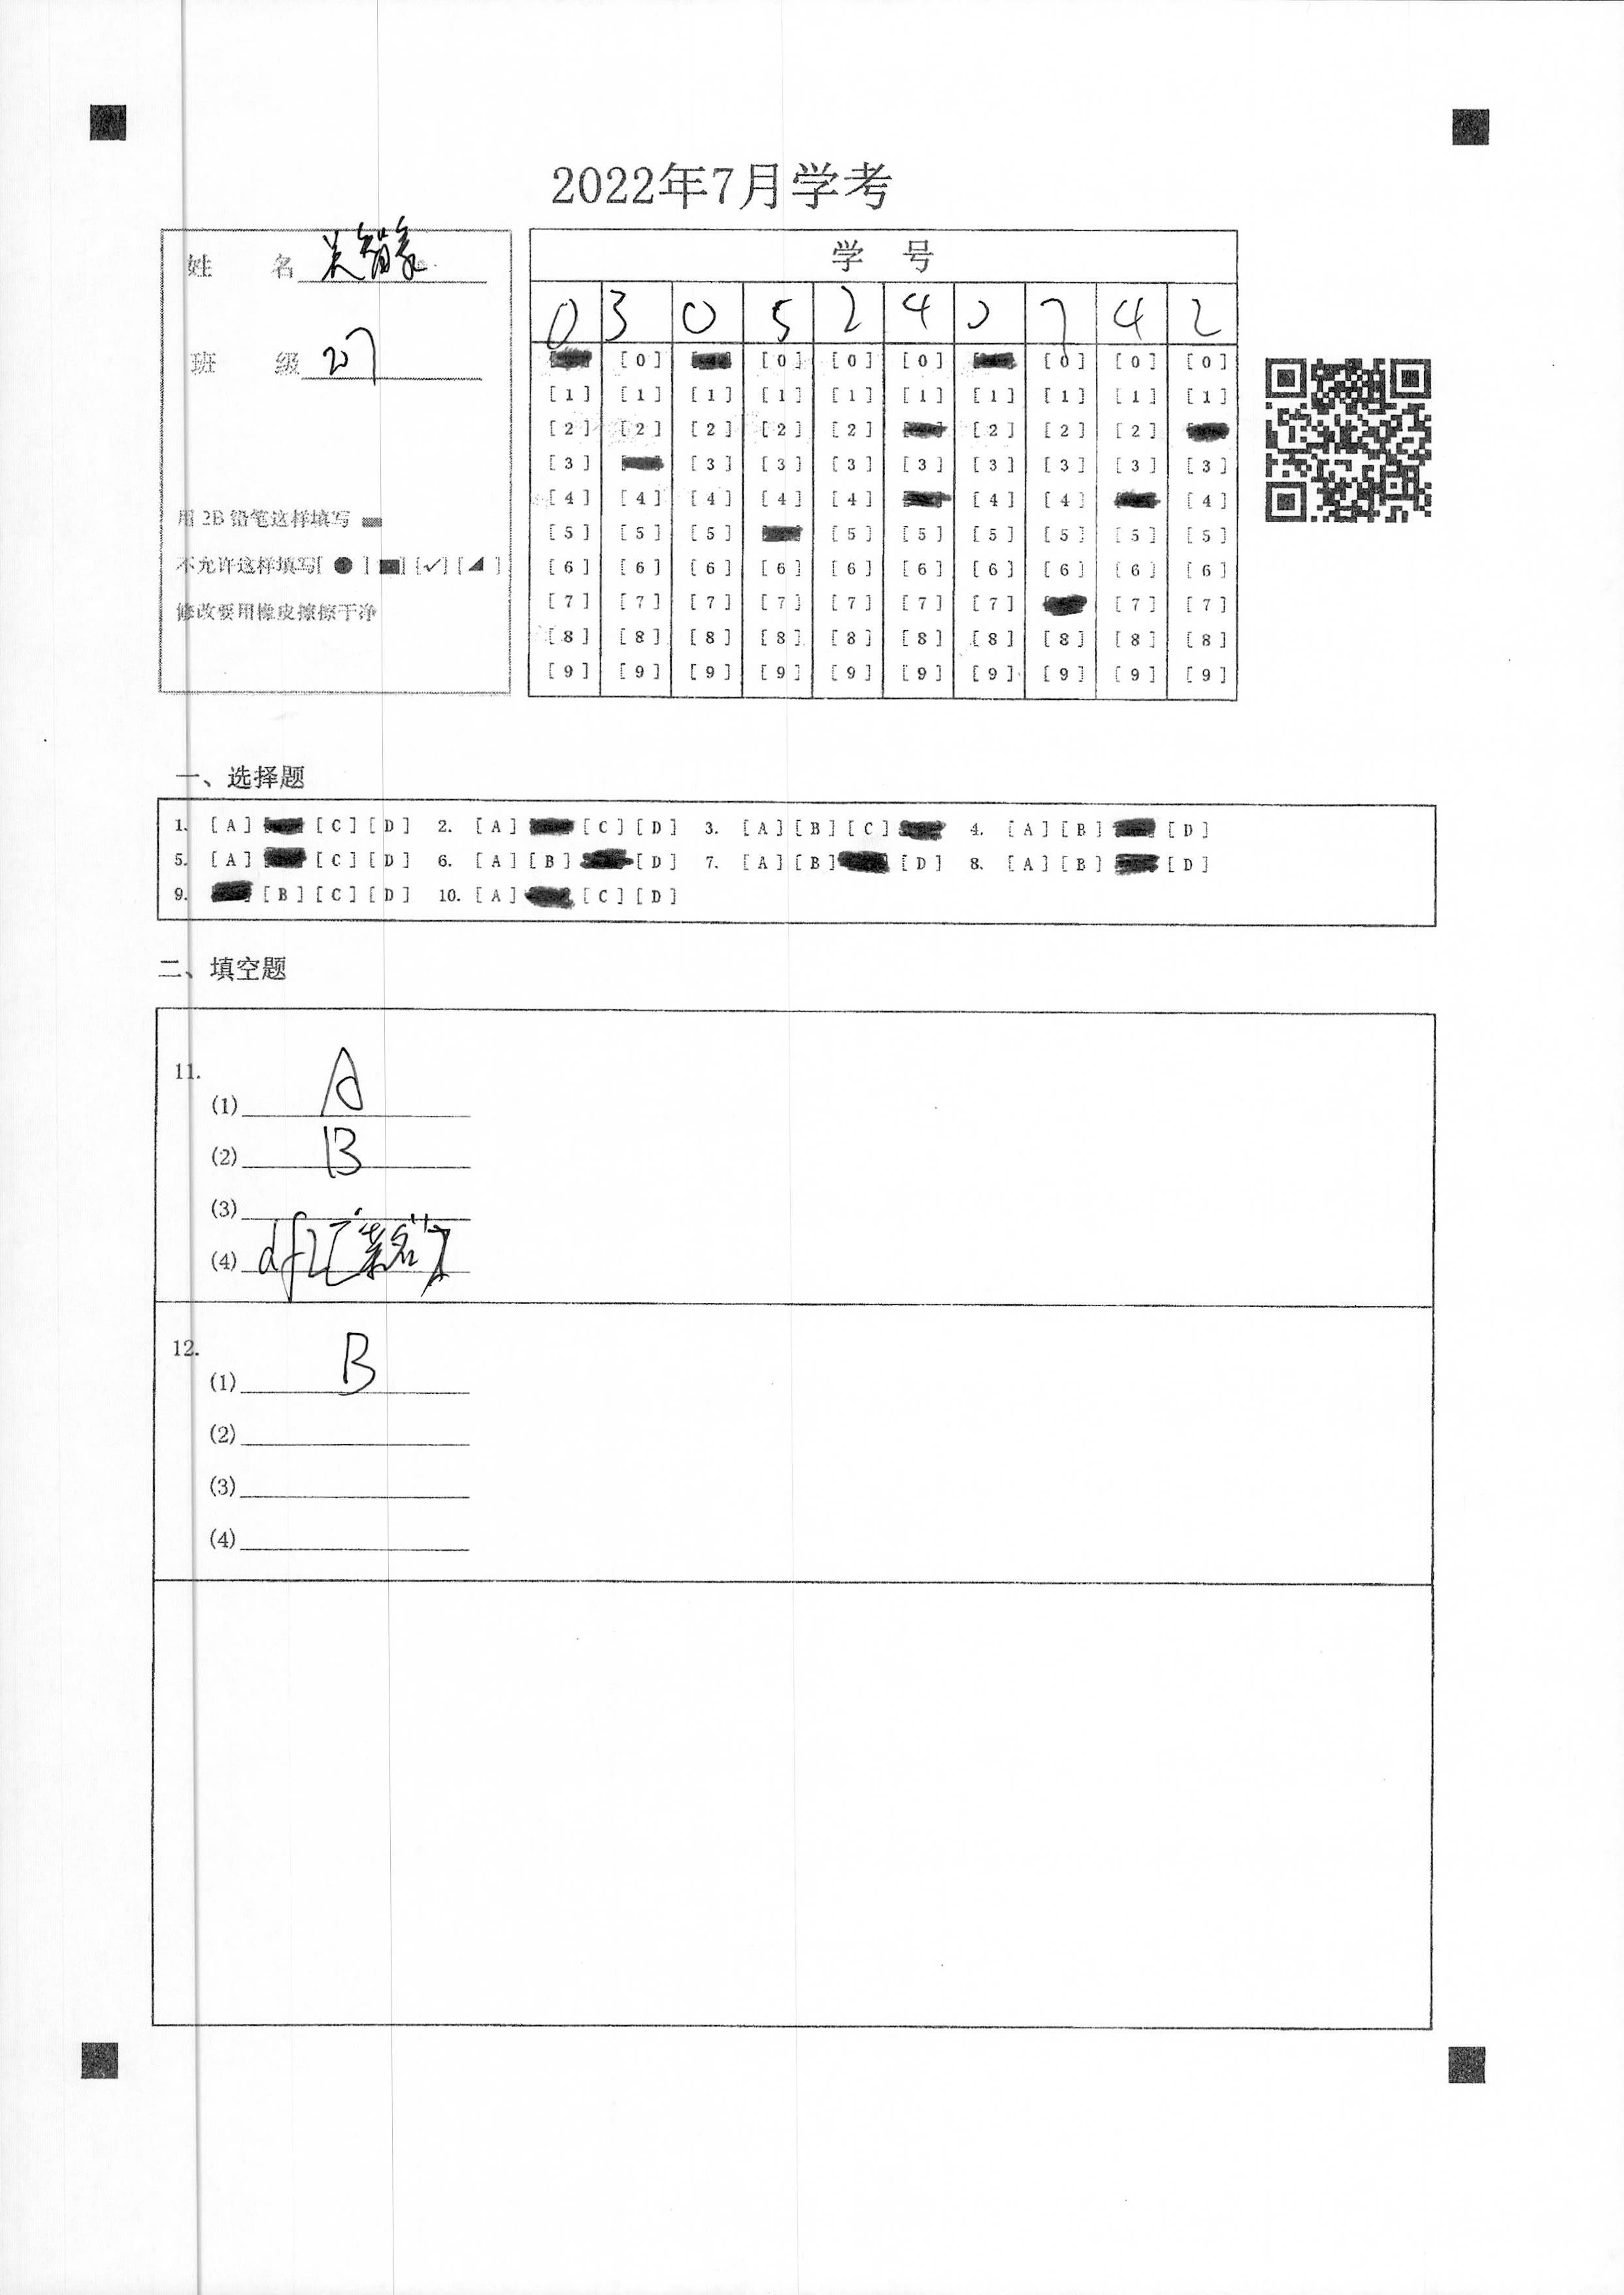 2022年7月学考
姓 名 关智豪
班 级 207
用 2B 铅笔这样填写
不允许这样填写[ ● ] [■] [✓] [◢ ]
修改要用橡皮擦擦干净
学 号
0 3 0 5 2 4 0 7 4 2
[0] [0] [0] [0] [0] [0] [0]
[1] [1] [1] [1] [1] [1] [1] [1] [1] [1]
[2] [2] [2] [2] [2] [2] [2] [2]
[3] [3] [3] [3] [3] [3] [3] [3] [3]
[4] [4] [4] [4] [4] [4] [4] [4]
[5] [5] [5] [5] [5] [5] [5] [5] [5]
[6] [6] [6] [6] [6] [6] [6] [6] [6] [6]
[7] [7] [7] [7] [7] [7] [7] [7] [7]
[8] [8] [8] [8] [8] [8] [8] [8] [8] [8]
[9] [9] [9] [9] [9] [9] [9] [9] [9] [9]
一、选择题
1. [A] [C] [D] 2. [A] [C] [D] 3. [A] [B] [C] 4. [A] [B] [D]
5. [A] [C] [D] 6. [A] [B] [D] 7. [A] [B] [D] 8. [A] [B] [D]
9. [B] [C] [D] 10. [A] [C] [D]
二、填空题
11.
(1) A
(2) B
(3)
(4) df2["菜名"]
12.
(1) B
(2)
(3)
(4)